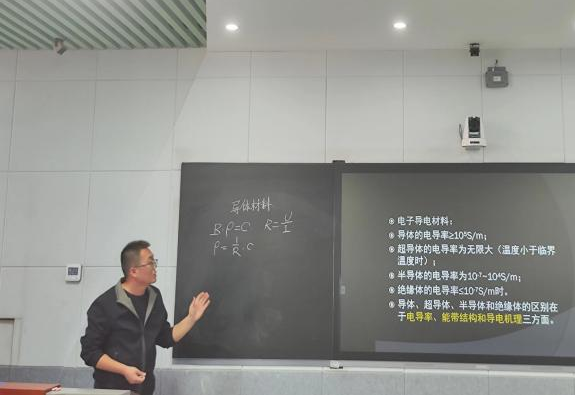 导体材料
B·ρ=C R=U/I
ρ=1/R·C
电子导电材料：
导体的电导率≥10⁵S/m；
超导体的电导率为无限大（温度小于临界
温度时）；
半导体的电导率为10⁻⁷~10⁴S/m；
绝缘体的电导率≤10⁻⁷S/m时。
导体、超导体、半导体和绝缘体的区别在
于电导率、能带结构和导电机理三方面。